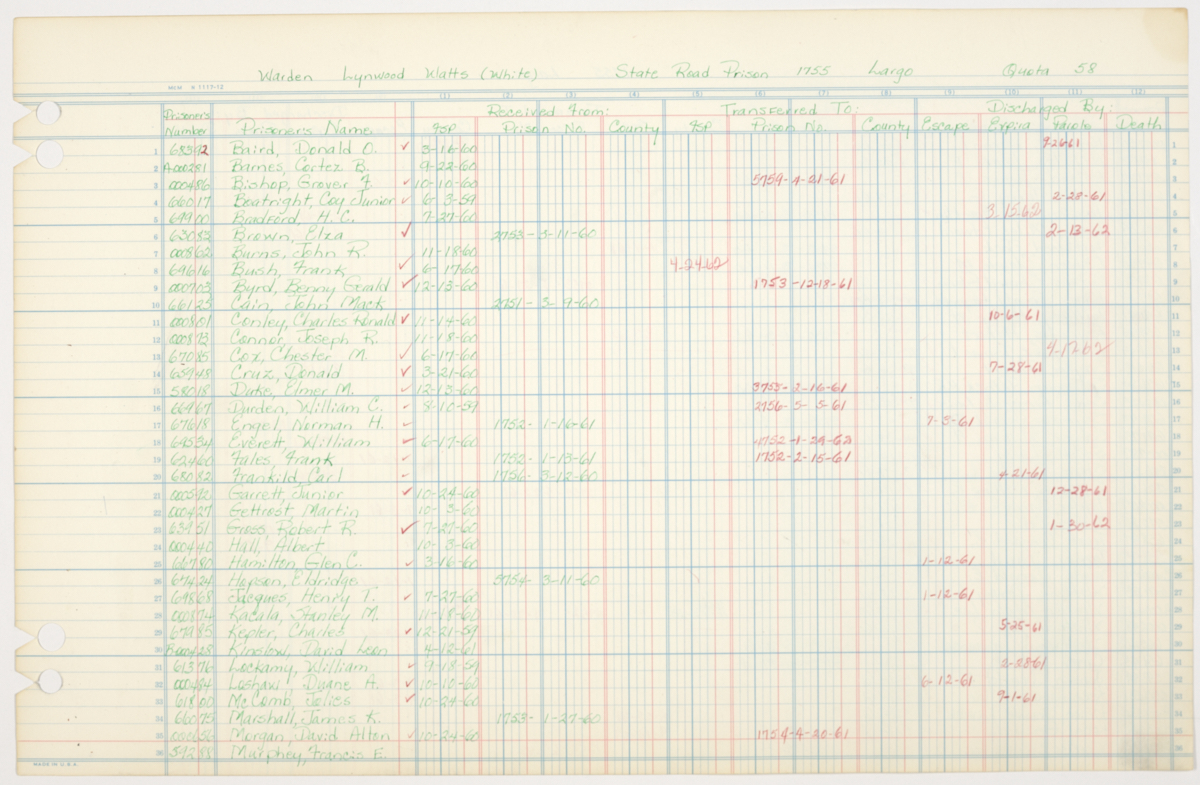 Warden Lynwood Watts (White) State Road Prison 1755 Largo Quota 58
MLM K 1113-12
(1) (2) (3) (4) (5) (6) (7) (8) (9) (10) (11) (12)
Prisoner's Received From: Transferred To: Discharged By:
Number Prisoner's Name FSP Prison No. County FSP Prison No. County Escape Expira Parole Death
1 68592 Baird, Donald O. ✓ 3-16-60 9-26-61 1
2 A-000281 Barnes, Cortez B. 9-22-60 2
3 000486 Bishop, Grover F. ✓ 10-10-60 5759-4-21-61 3
4 66017 Boatright, Coy Junior ✓ 6-3-59 2-28-61 4
5 69900 Bradford, H.C. 7-27-60 3-15-62 5
6 63083 Brown, Elza ✓ 2753-3-11-60 2-13-62 6
7 000862 Burns, John R. 11-18-60 7
8 69616 Bush, Frank ✓ 6-17-60 4-24-62 8
9 000703 Byrd, Benny Gerald ✓ 12-13-60 1753-12-18-61 9
10 66125 Cain, John Mack 2751-3-9-60 10
11 000801 Conley, Charles Ronald ✓ 11-14-60 10-6-61 11
12 000873 Connor, Joseph R. 11-18-60 12
13 67085 Cox, Chester M. ✓ 6-17-60 4-17-62 13
14 65948 Cruz, Donald ✓ 3-21-60 7-28-61 14
15 58018 Duke, Elmer M. ✓ 12-13-60 3755-2-16-61 15
16 66967 Durden, William C. ✓ 8-10-59 2756-5-5-61 16
17 67618 Engel, Norman H. ✓ 1752-1-16-61 7-3-61 17
18 69534 Everett, William ✓ 6-17-60 1752-1-29-62 18
19 62460 Fales, Frank ✓ 1752-1-13-61 1752-2-15-61 19
20 68082 Frankild, Carl ✓ 1756-3-12-60 4-21-61 20
21 000592 Garrett, Junior ✓ 10-24-60 12-28-61 21
22 000427 Gettrost Martin 10-3-60 22
23 63951 Gross, Robert R. ✓ 7-27-60 1-30-62 23
24 000440 Hall, Albert 10-3-60 24
25 66780 Hamilton, Glen C. ✓ 3-16-60 1-12-61 25
26 67424 Hopson, Eldridge 5754-3-11-60 26
27 69868 Jacques, Henry T. ✓ 7-27-60 1-12-61 27
28 000874 Kacala, Stanley M. 11-18-60 28
29 67985 Kepler, Charles ✓ 12-21-59 5-25-61 29
30 000428 Kinslow, David Leon 4-12-61 30
31 61376 Lockamy, William ✓ 9-18-59 2-28-61 31
32 000484 Loshaw, Duane A. ✓ 10-10-60 6-12-61 32
33 61800 McComb, Joliss ✓ 10-24-60 9-1-61 33
34 66075 Marshall, James K. 1753-1-27-60 34
35 000656 Morgan, David Alton ✓ 10-24-60 1754-4-20-61 35
36 59288 Murphey, Francis E. 36
MADE IN U.S.A.